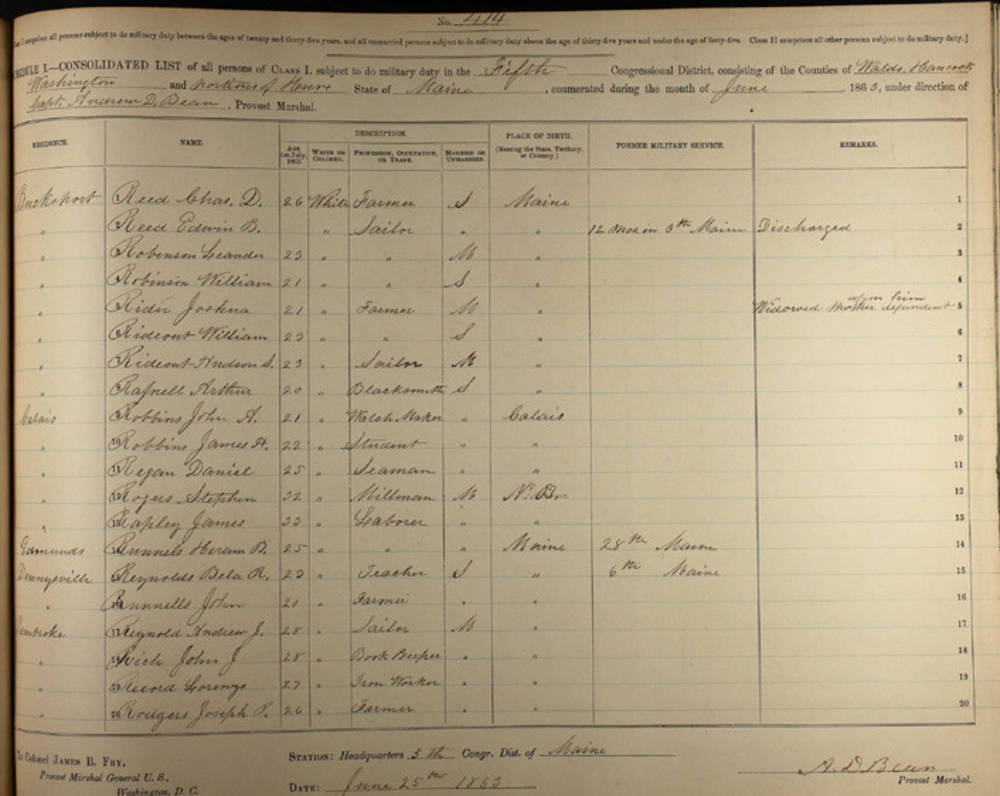 No. 414
comprises all persons subject to do military duty between the ages of twenty and thirty-five years, and all unmarried persons subject to do military duty above the age of thirty-five years and under the age of forty-five. Class II comprises all other persons subject to do military duty.]
SCHEDULE I.—CONSOLIDATED LIST of all persons of CLASS I, subject to do military duty in the Fifth Congressional District, consisting of the Counties of Waldo, Hancock
Washington and portions of State of Maine, enumerated during the month of June, 1863, under direction of
Capt. Andrew D. Bean, Provost Marshal.
RESIDENCE. NAME. DESCRIPTION. PLACE OF BIRTH. FORMER MILITARY SERVICE. REMARKS.
AGE 1st July, 1863. WHITE OR COLORED. PROFESSION, OCCUPATION, OR TRADE. MARRIED OR UNMARRIED. (Naming the State, Territory, or Country.)
Bucksport Reed Chas. D. 26 White Farmer S Maine 1
" Reed Edwin B. " Sailor " " 12 mos in 6th Maine Discharged 2
" Robinson Leander 23 " " M " 3
" Robinson William 21 " " S " 4
" Rider Joshua 21 " Farmer M " Widowed Mother dependent upon him 5
" Rideout William 22 " " S " 6
" Rideout Hudson S. 23 " Sailor M " 7
" Arthur 20 " Blacksmith S " 8
Calais Robbins John A. 21 " Watch Maker " Calais 9
" Robbins James H. 22 " Student " " 10
" Regan Daniel 25 " Seaman " " 11
" Rogers Stephen 32 " Millman M N. 12
" Rapley James 33 " Laborer " " 13
Edmunds Runnels Hiram B. 25 " " " Maine 28th Maine 14
Dennysville Reynolds Bela R. 23 " Teacher S " 6th Maine 15
" Runnells John 20 " Farmer " " 16
Pembroke Reynold Andrew J. 28 " Sailor M " 17
" Rich John J 28 " Book Keeper " " 18
" Record Lorenzo 27 " Iron Worker " " 19
" Rodgers Joseph P. 26 " Farmer " " 20
To Colonel JAMES B. FRY,
Provost Marshal General U. S.,
Washington, D. C.
STATION: Headquarters 5th Congr. Dist. of Maine
DATE: June 25th 1863
A. D. Bean
Provost Marshal.